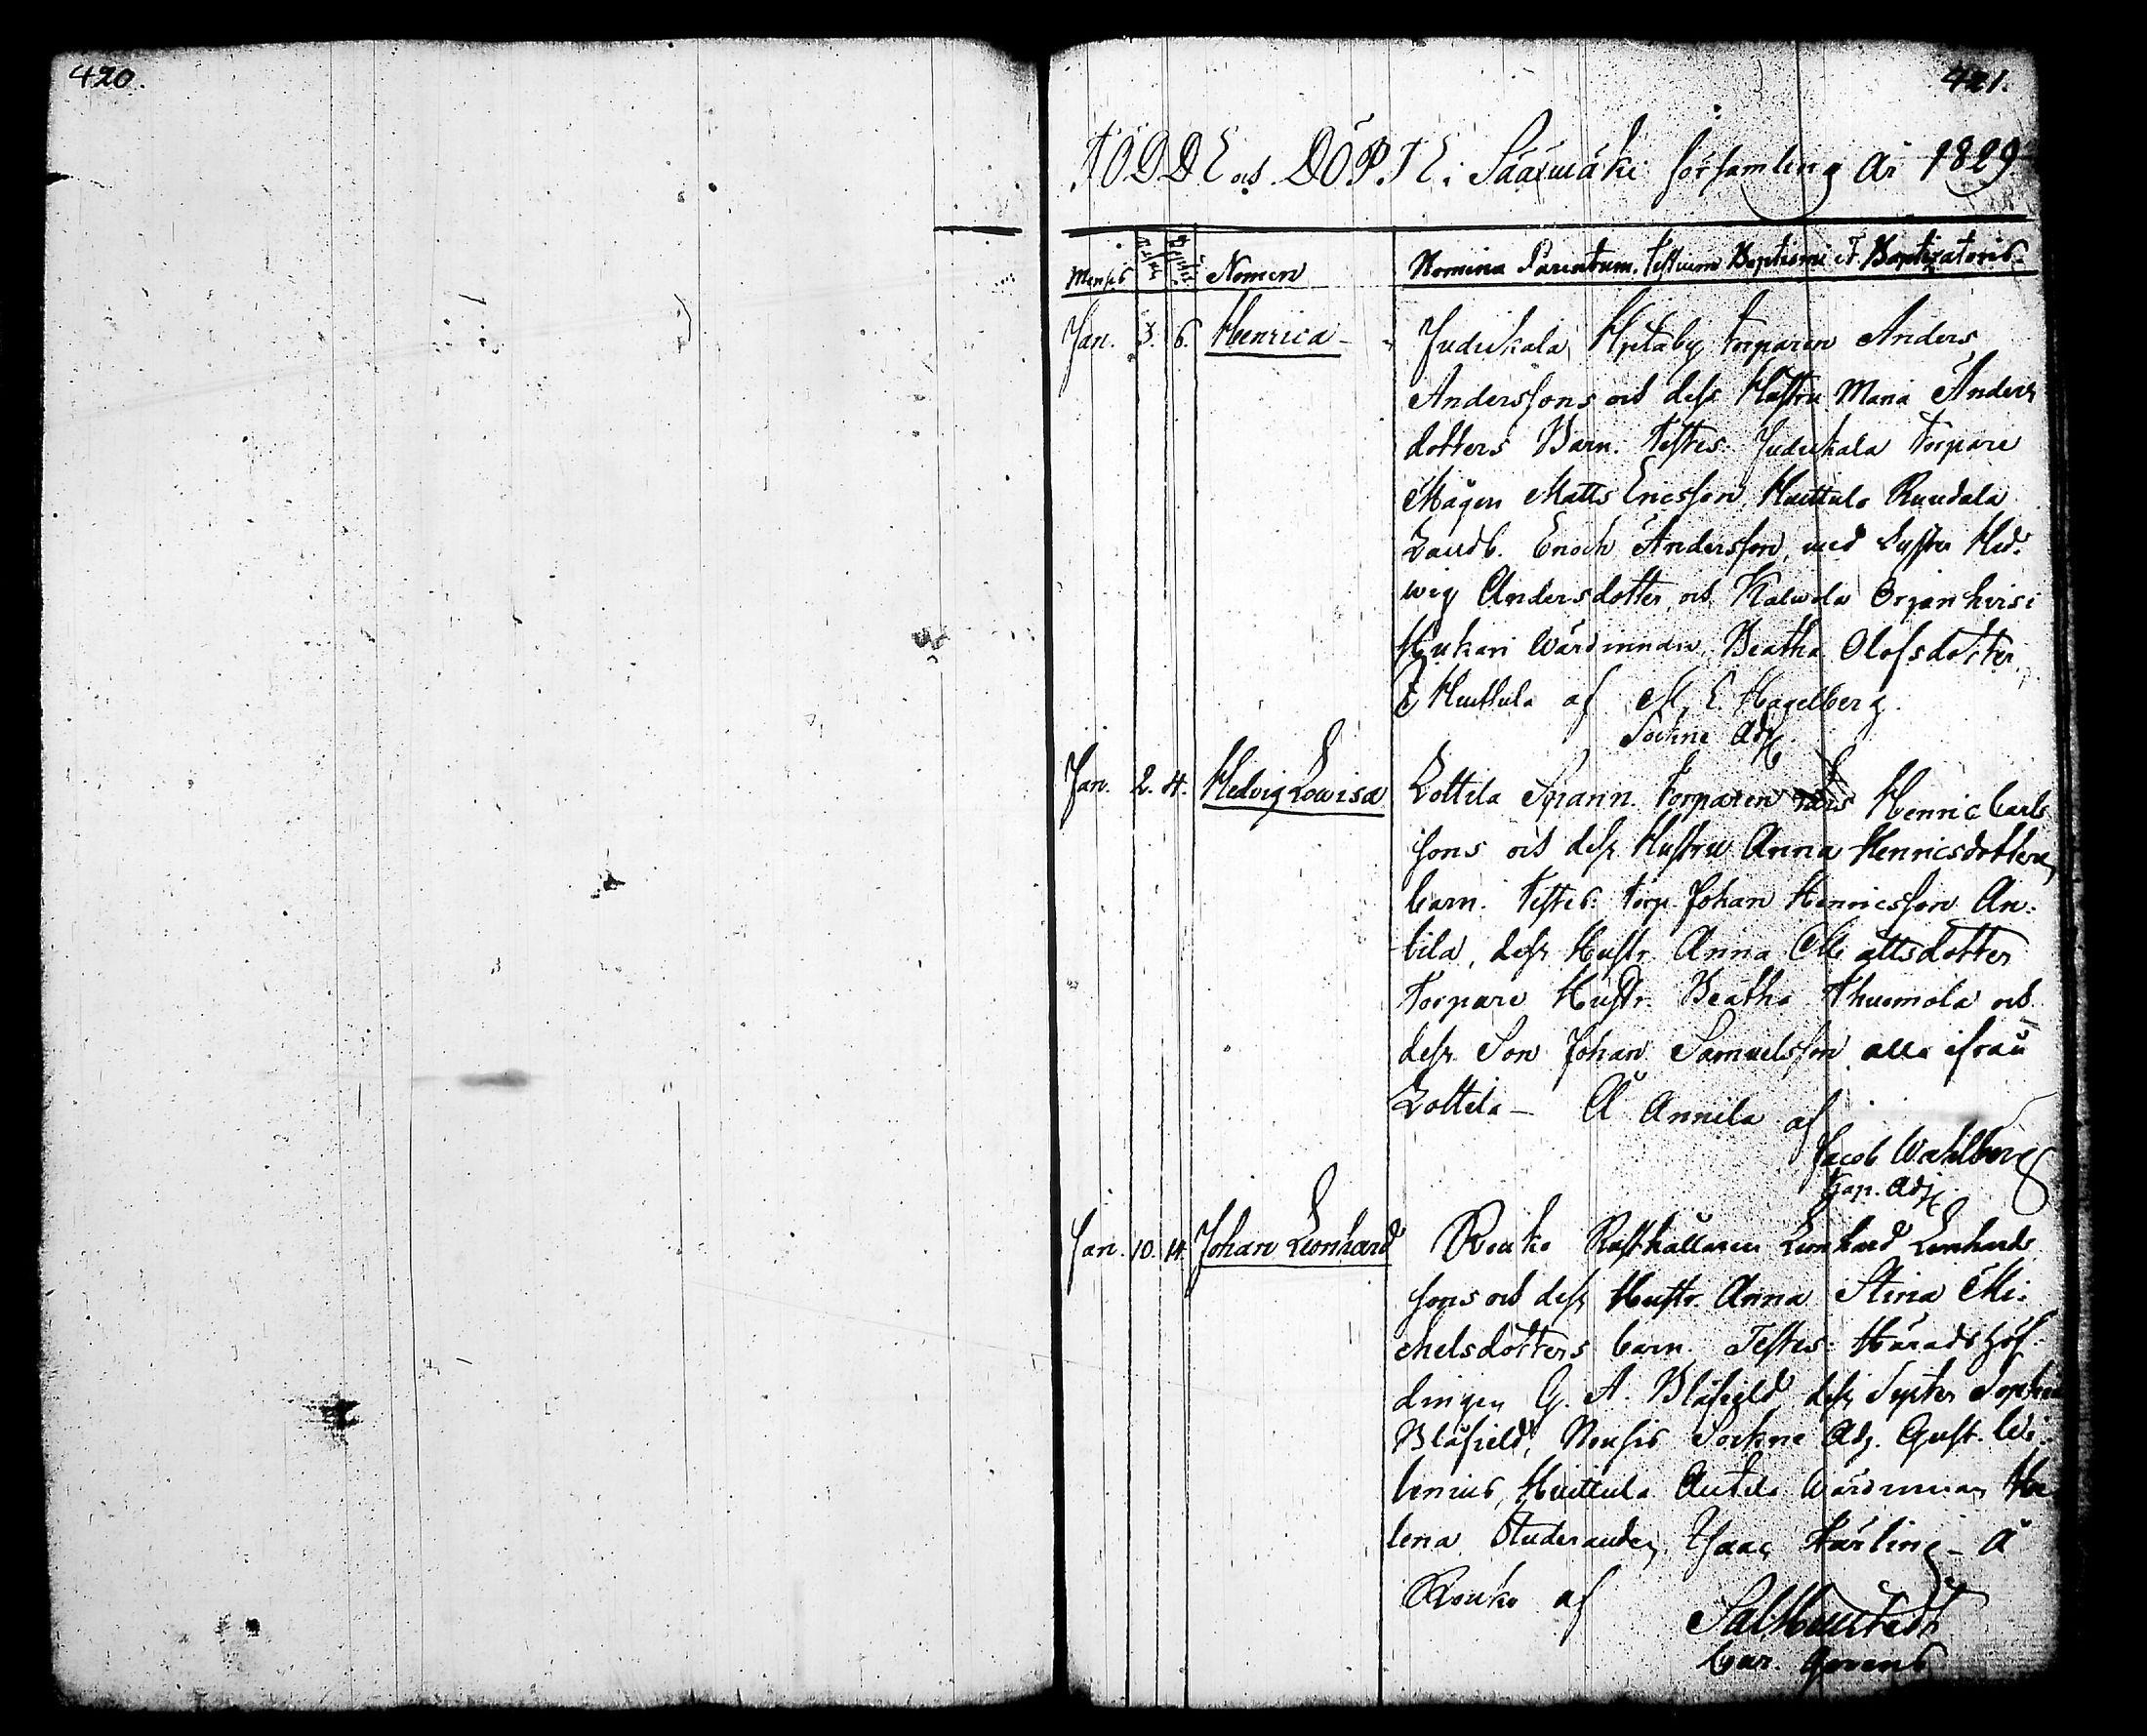 420.
421.
FÖDDE och DÖPTE i Sääxmäki församling år 1829
Mensis Nomen Nomina Parentum. Testium Baptismi et Baptizatoris.
Jan. 3. 6. Henrica - Judickala, torparen Anders
Anderssons och dess Hustru Maria Anders
dotters Barn. Testes. Judickala torpare
Mågen Matts Ericsson, Huittula
Landb. Enoch Andersson, med Syster Hed-
wig Andersdotter, och Kalwola Orjanhirsi
Wärdinnan Beatha Olofsdotter
Huittula af M. E. Hagelberg.
Sockne Adj.
Jan. 2. 4. Hedvig Lowisa Lottila torparen Henric Carls
sons och dess Hustru Anna Henricsdotters
barn. testes: torp. Johan Henricsson An-
tila, dess Hustr. Anna Mattsdotter
torpare Hustr. Beatha Thuomola och
dess Son Johan Samuelsson alla ifrån
Lottila - Å Annila af
Jacob Wahlberg
Kap. Adj.
Jan. 10. 14. Johan Leonhard Rouko Rusthållaren Leonhard Leonhards
sons och dess Hustr. Anna Stina Mi-
chelsdotters barn. Testes: Häradshöf-
dingen G. A. Blåfield, dess Syster Sophia
Blåfield, Sockne Adj. Gust. We-
lenius, Huittula Anttila Wärdinnan He
lena Studeranden Isaac Härling - Å
Rouko af
Cur. gerens